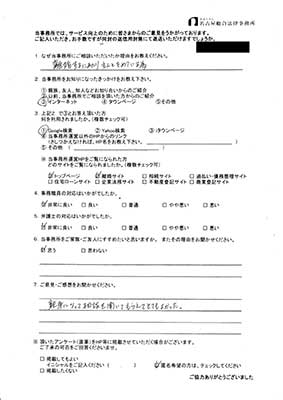 名古屋総合法律事務所
当事務所では、サービス向上のために皆さまからのご意見をうかがっております。
ご記入いただき、お手数ですが同封の返信用封筒にて返送いただけますでしょうか。
1. なぜ当事務所にご相談いただいたか理由をお教えください。
2. 当事務所をお知りになったきっかけをお教えください。
①親族、友人、知人などお知り合いからのご紹介
②以前、当事務所でご相談いただいた方からのご紹介
③インターネット ④タウンページ ⑤その他
3. 上記2 で③とお答え頂いた方
何を利用されましたか。(複数チェック可)
①Google検索 ②Yahoo!検索 ③iタウンページ
④当事務所運営以外のHPからのリンク
(さしつかえなければ、HP名をお教え下さい。 )
⑤その他( )
※ 当事務所運営HPをご覧になられた方
どのサイトをご覧になられましたか。(複数チェック可)
トップページ 離婚サイト 相続サイト 過払い・債務整理サイト
住宅ローンサイト 企業法務サイト 不動産登記サイト 商業登記サイト
4. 事務職員の対応はいかがでしたか。
非常に良い 良い 普通 やや悪い 悪い
5. 弁護士の対応はいかがでしたか。
非常に良い 良い 普通 やや悪い 悪い
6. 当事務所をご家族・ご友人にすすめたいと思いますか。またその理由をお聞かせください。
思う 思わない
7. ご意見・ご感想をお聞かせください。
親身になって相談を聞いてもらえてとてもよかった。
8. 頂いたアンケート(直筆)をHP等に掲載させていただく場合がございます。
ご了承の可否をご回答くださいませ。
掲載してもよい
イニシャルをご記入ください( ) 匿名希望の方は、チェックしてください
掲載したくない
ご協力ありがとうございました